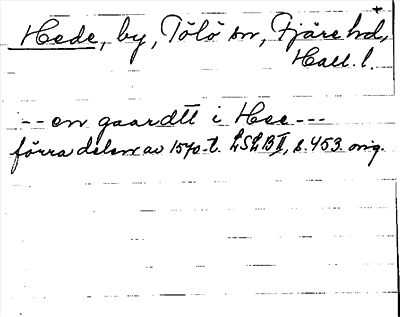 Hede, by, Tölö sn, Fjäre hd,
Hall. l.
-- en gaardtt i Hee ---
förra delen av 1570-t. LSLB II, s. 453. orig.